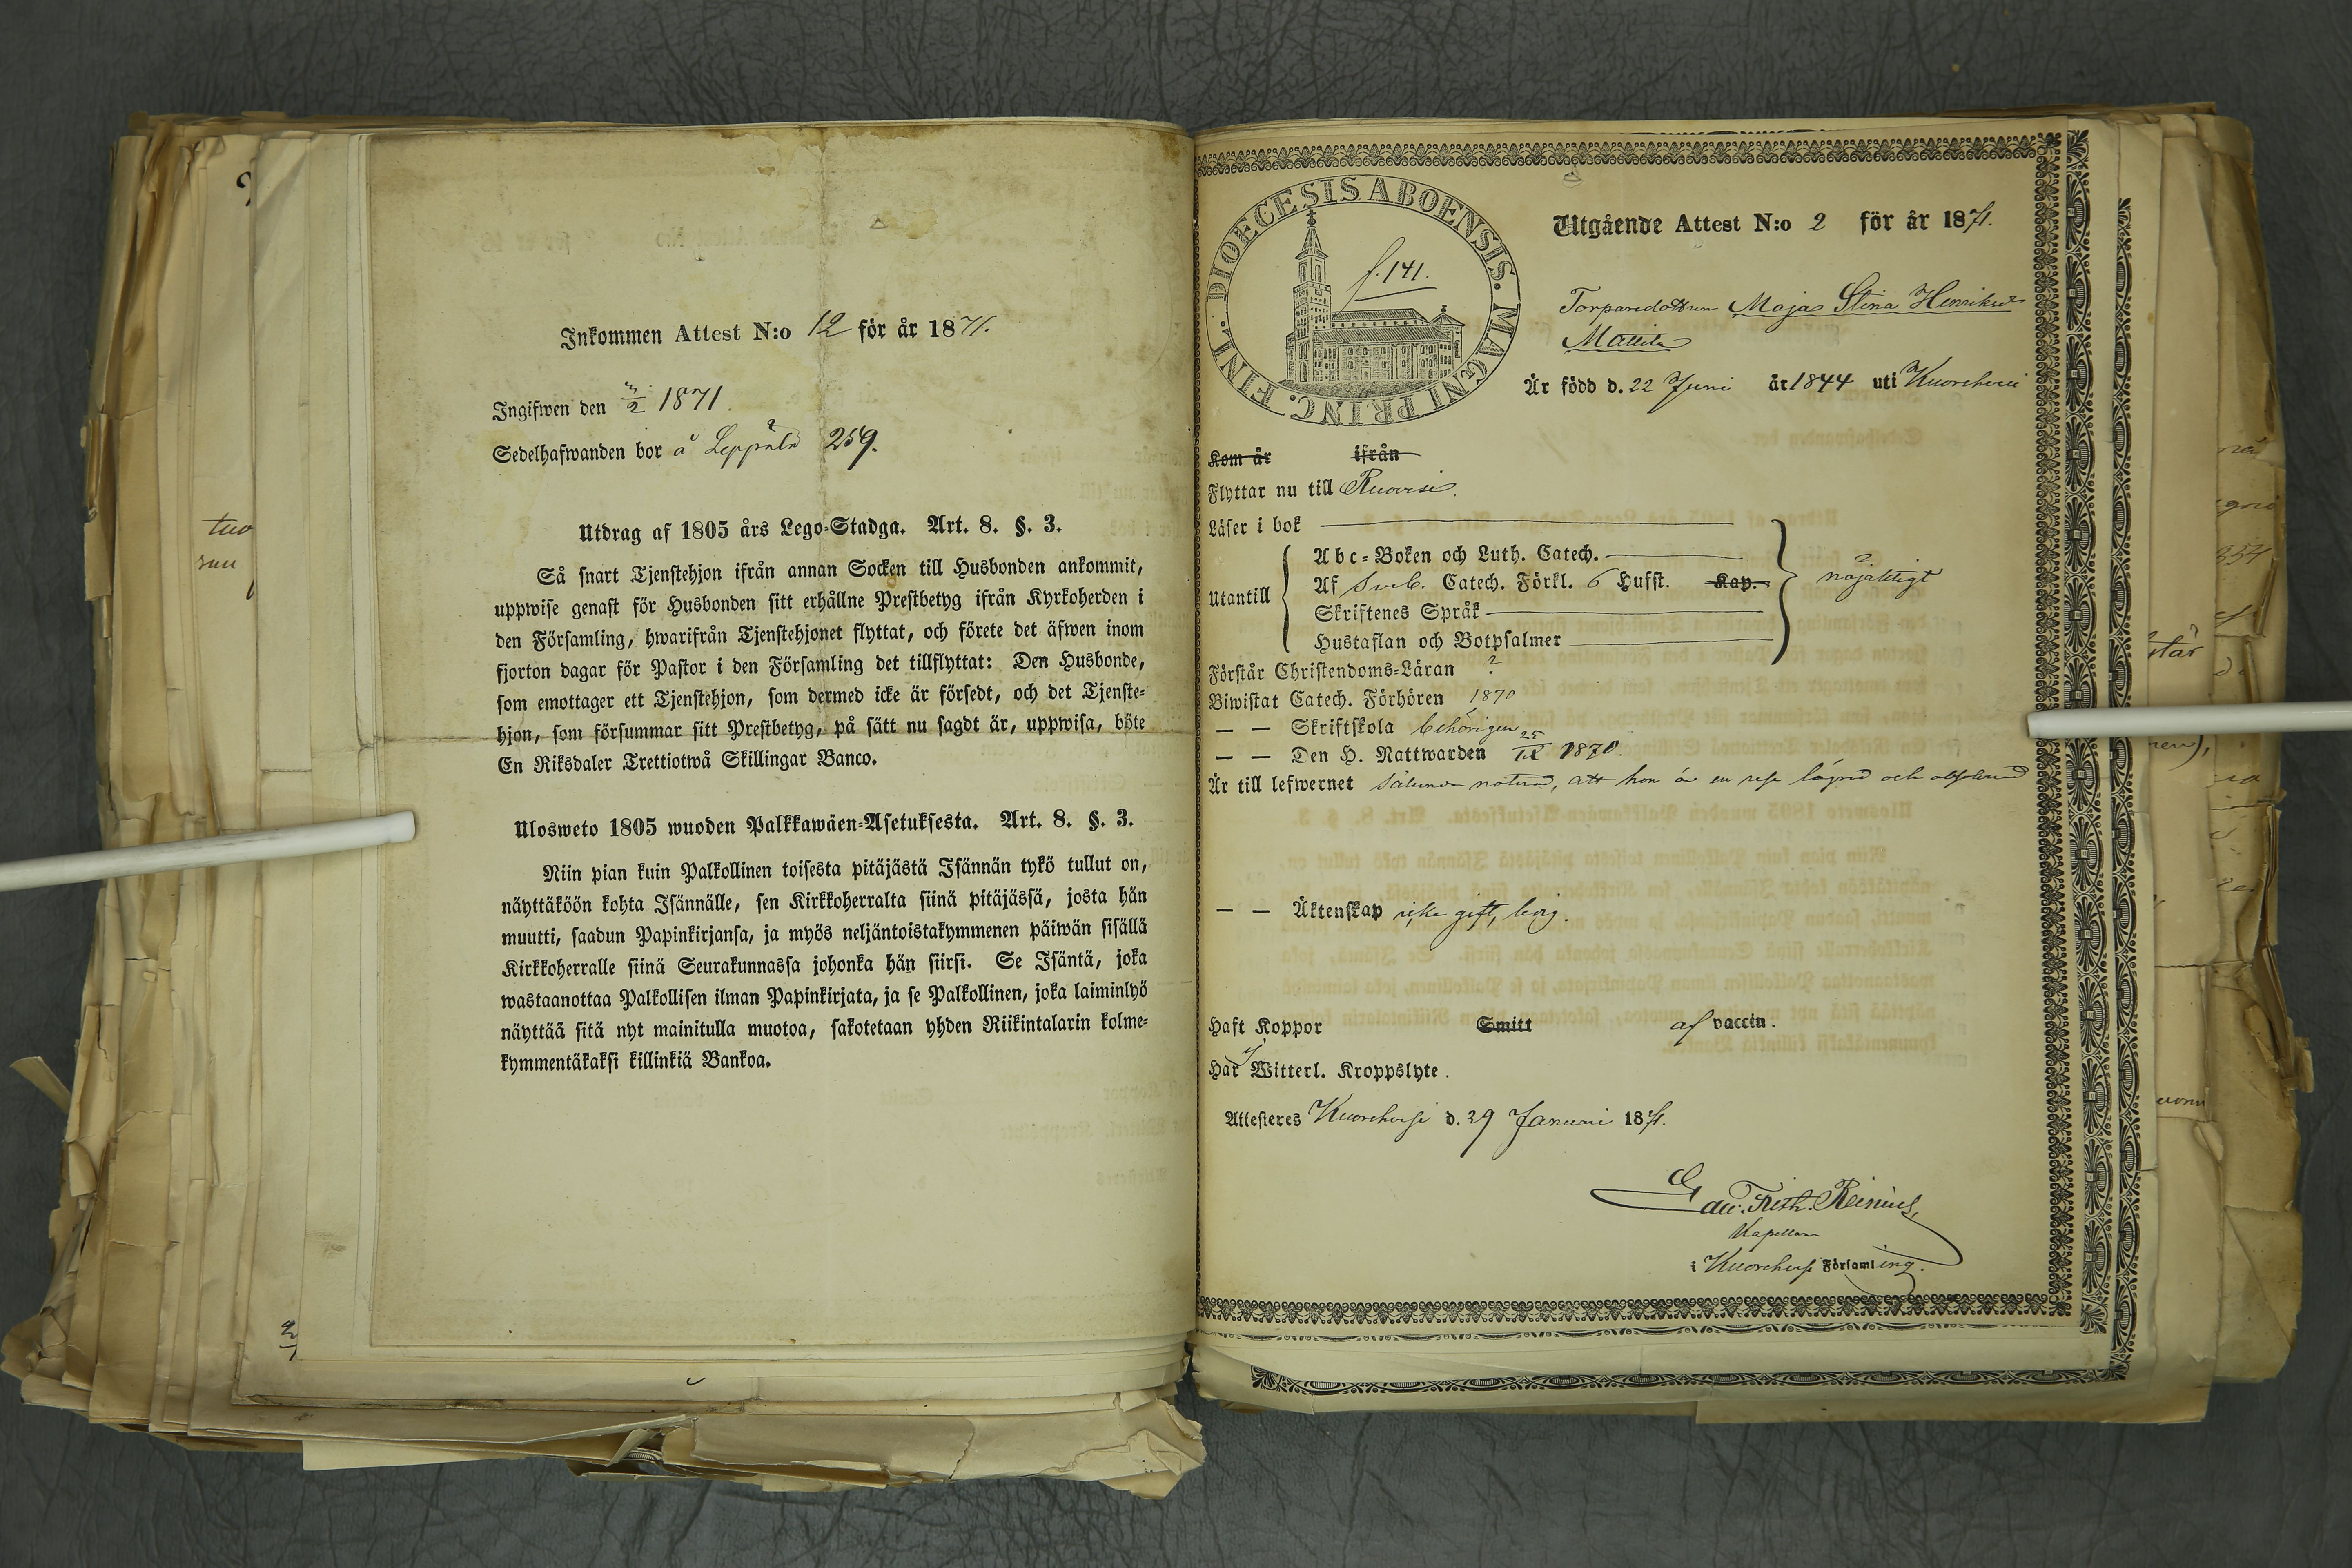 Inkommen Attest N:o 12 för år 1871.
Ingifwen den 3/2 1871.
Sedelhafwanden bor å Leppälä 259.
Utdrag af 1805 års Lego-Stadga. Art. 8. §. 3.
Så snart Tjenstehjon ifrån annan Socken till Husbonden ankommit,
uppwise genast för Husbonden sitt erhållne Prestbetyg ifrån Kyrkoherden i
den Församling, hwarifrån Tjenstehjonet flyttat, och förete det äfwen inom
fjorton dagar för Pastor i den Församling det tillflyttat: Den Husbonde,
som emottager ett Tjenstehjon, som dermed icke är försedt, och det Tjenste-
hjon, som försummar sitt Prestbetyg, på sätt nu sagdt är, uppwisa, böte
En Riksdaler Trettiotwå Skillingar Banco.
Ulosweto 1805 wuoden Palkkawäen-Asetuksesta. Art. 8. §. 3.
Niin pian kuin Palkollinen toisesta pitäjästä Isännän tykö tullut on,
näyttäköön kohta Isännälle, sen Kirkkoherralta siinä pitäjässä, josta hän
muutti, saadun Papinkirjansa, ja myös neljäntoistakymmenen päiwän sisällä
Kirkkoherralle siinä Seurakunnassa johonka hän siirsi. Se Isäntä, joka
wastaanottaa Palkollisen ilman Papinkirjata, ja se Palkollinen, joka laiminlyö
näyttää sitä nyt mainitulla muotoa, sakotetaan yhden Riikintalarin kolme-
kymmentäkaksi killinkiä Bankoa.
DIOECESIS ABOENSIS. MAGNI PRINC. FINL.
f. 141.
Utgående Attest N:o 2 för år 1871.
Torparedottren Maja Stina Henriksd
Mattila
Är född d. 22 Juni år 1844 uti Kuorehvesi
Kom år ifrån
Flyttar nu till Ruovesi.
Läser i bok
Abc-Boken och Luth. Catech.
Utantill Af Sveb. Catech. Förkl. 6 Hufst. Kap. nöjaktigt
Skriftenes Språk
Hustaflan och Botpsalmer
Förstår Christendoms-Läran ?
Biwistat Catech. Förhören 1870
— — Skriftskola behörigen
— — Den H. Nattwarden 25/IX 1870.
Är till lefwernet sålunda noterad, att hon är en resa lägrad och absolverad
— — Äktenskap icke gift, ledig.
Haft Koppor Smitt af vaccin.
Har ej Witterl. Kroppslyte.
Attesteras Kuorehvesi d. 29 Januari 1871.
Frith. Reinius,
Kapellan
i Kuorehvesi Församling.